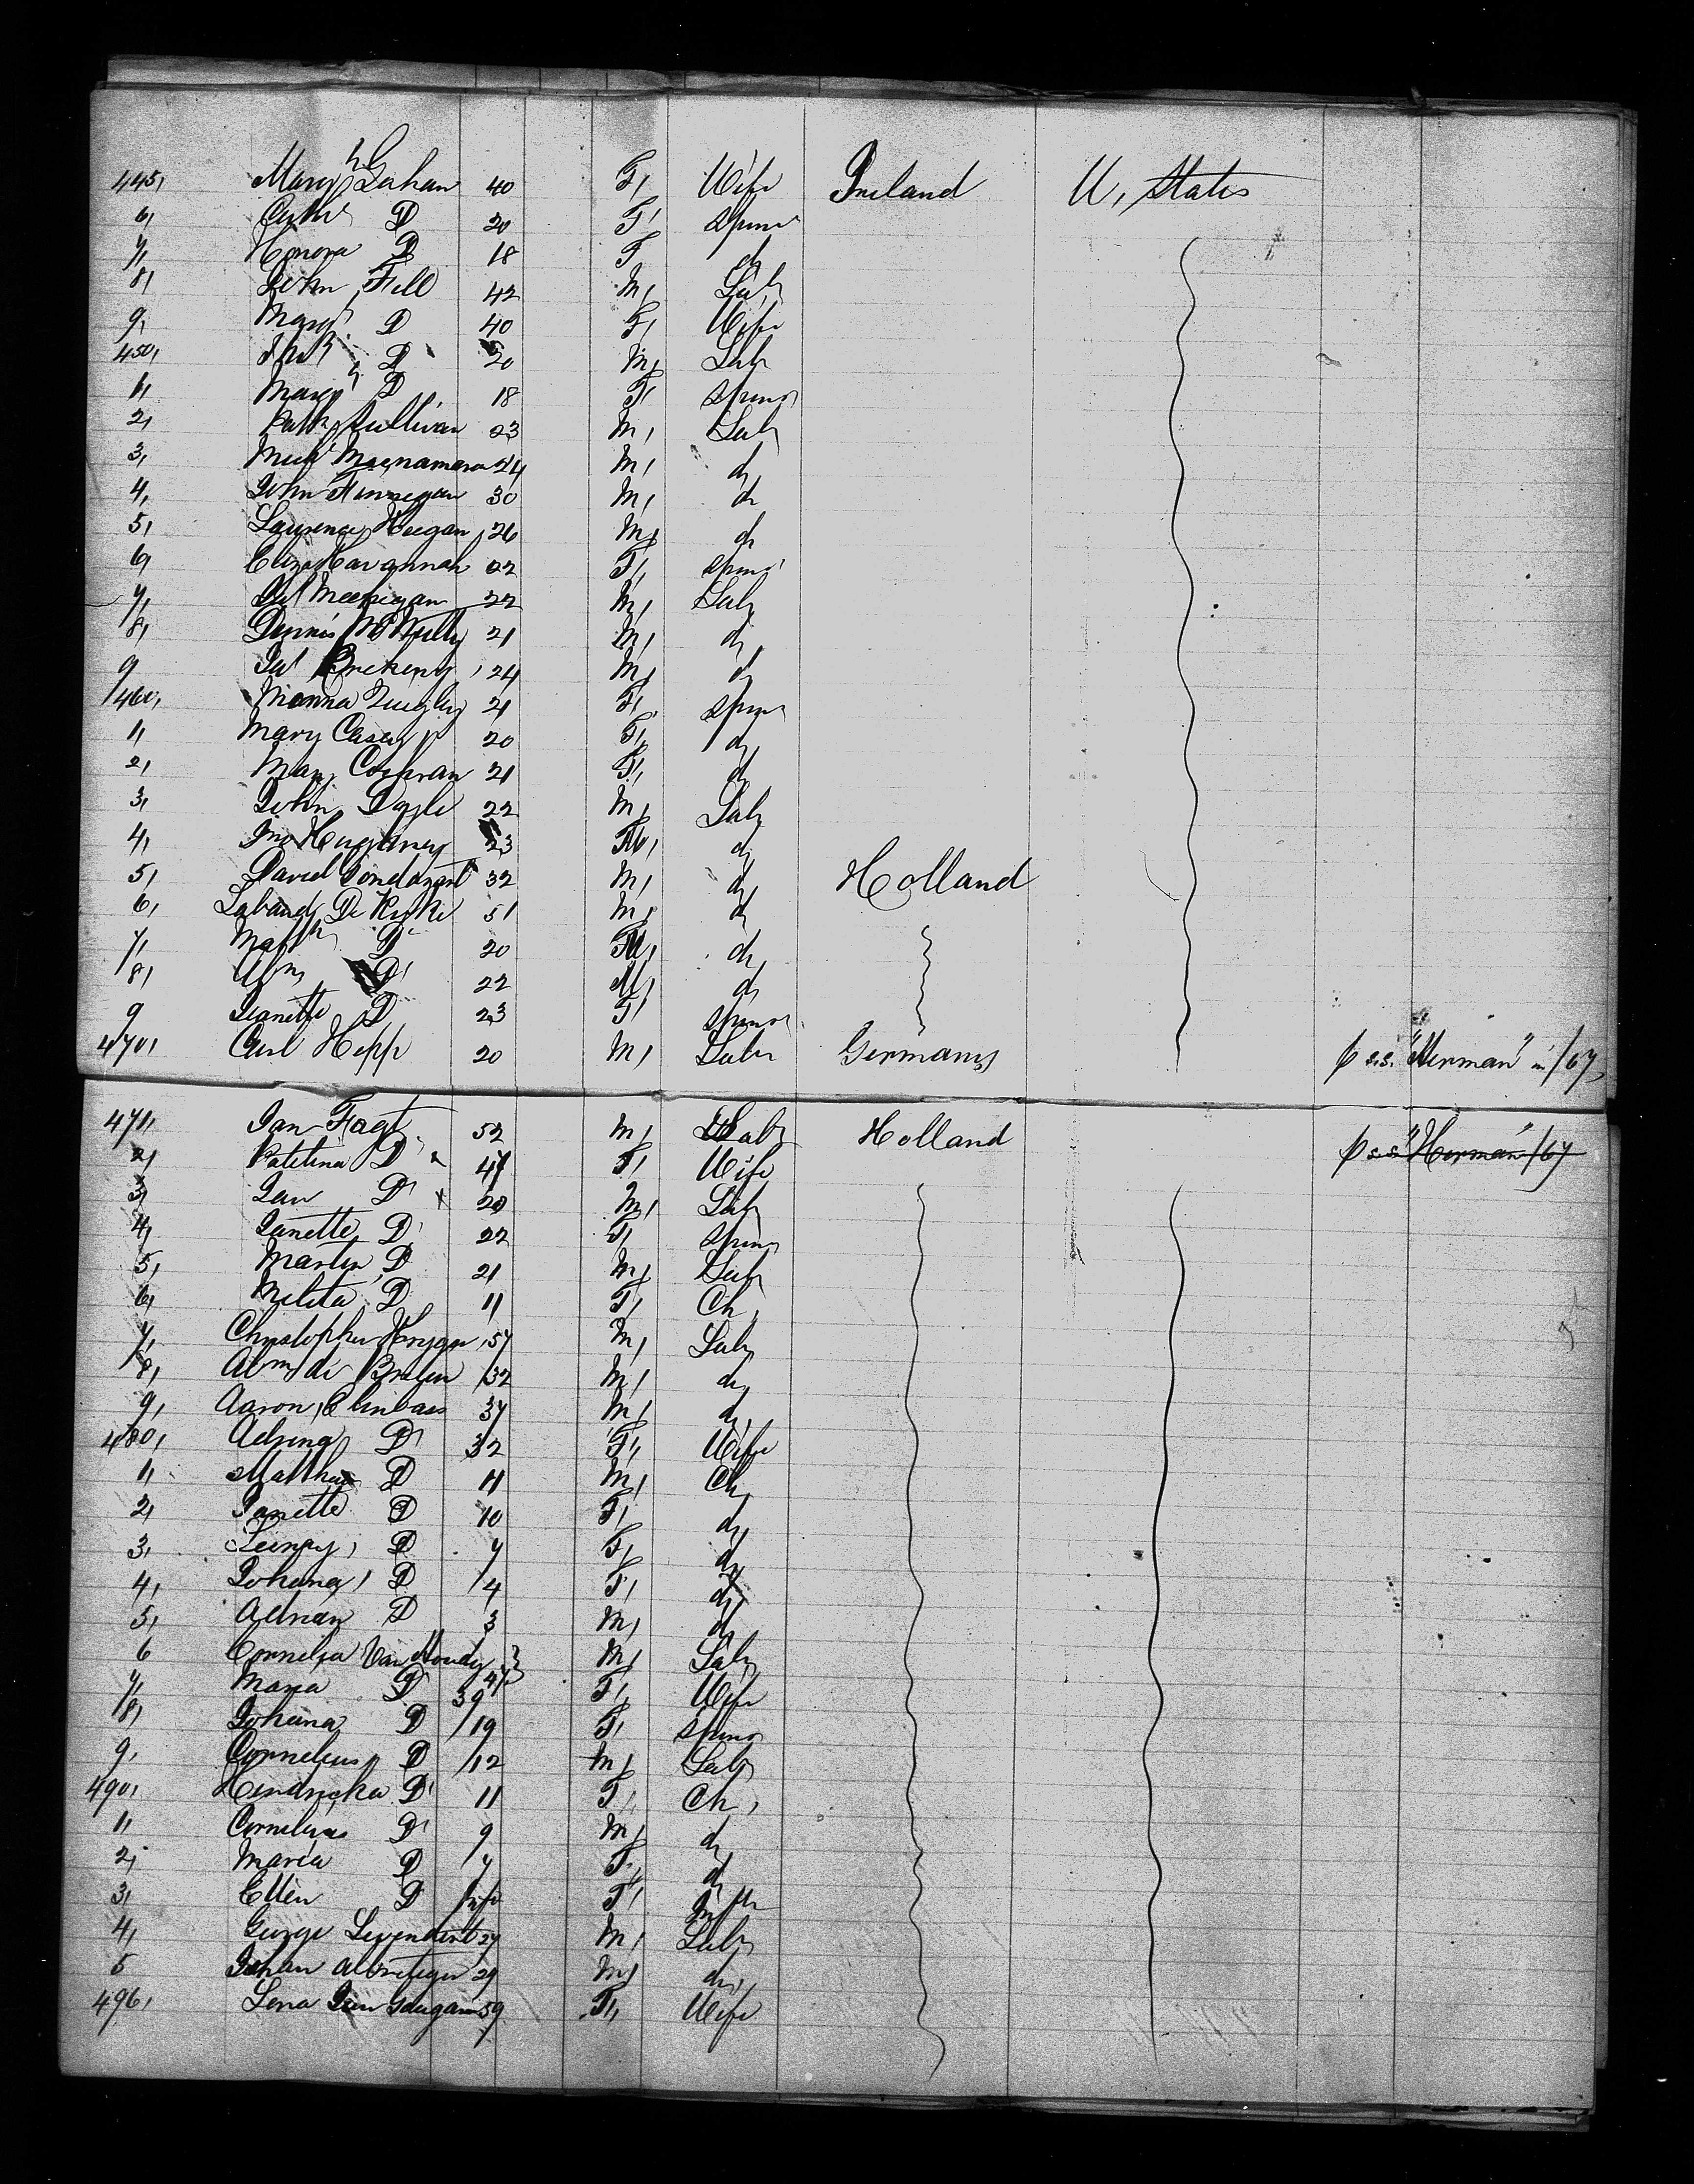 445, Mary Gahan 40 F, Wife Ireland U, States
6, Cath D 20 F, Spins
7, Honora D 18 F do
8, John Fill 42 M, Labr
9, Mary D 40 F, Wife
450, D 20 M, Labr
1, Mary D 18 F, Spins
2, Patk Sullivan 23 M, Labr
3, Michl Macnamara 24 M, do
4, John Finnegan 30 M, do
5, Laurence Keegan 26 M, do
6, Eliza Kavannah 22 F, Spins
7, Meehigan 22 M, Labr
8, Dennis McNulty 21 M, do
9 24 M, do
460, Quigley 21 F, Spins
1, Mary Casey 20 F, do
2, Mary Cochran 21 F, do
3, John Doyle 22 M, Labr
4, Jno Heughney 23 M, do
5, David 32 M, do Holland
6, De 51 M, do
7, D 20 M, do
8, Abm D 22 M, do
9 Jeanette D 23 F, Spins
470, Carl Hepp 20 M, Labr Germany p s.s. "Herman" in /67,
471, Jan Fagt 52 M, Labr Holland p s.s. "Herman" /67
2, D 47 F, Wife
3, Jan D 20 M, Labr
4, Janette D 22 F, Spins
5, Martin D 21 M, Labr
6, Melita D 11 F, Ch,
7, Christopher 57 M, Labr
8, Abm de 32 M, do
9, Aaron 37 M, do
480, Adrina D 32 F, Wife
1, D 11 M, Ch
2, Janette D 10 F, do
3, D 7 F, do
4, Johana D 4 F, do
5, Adrian D 3 M, do
6 Cornelia Van M, Labr
7, Maria D 39 F, Wife
8, Johana D 19 F, Spins
9, Cornelius D 12 M, Labr
490, Hendricka D 11 F, Ch,
1, Cornelius D 9 M, do
2, Maria D 7 F, do
3, Ellen D F, Inft
4, George 27 M, Labr
5 Johan 29 M, do
496, Lena 59 F, Wife